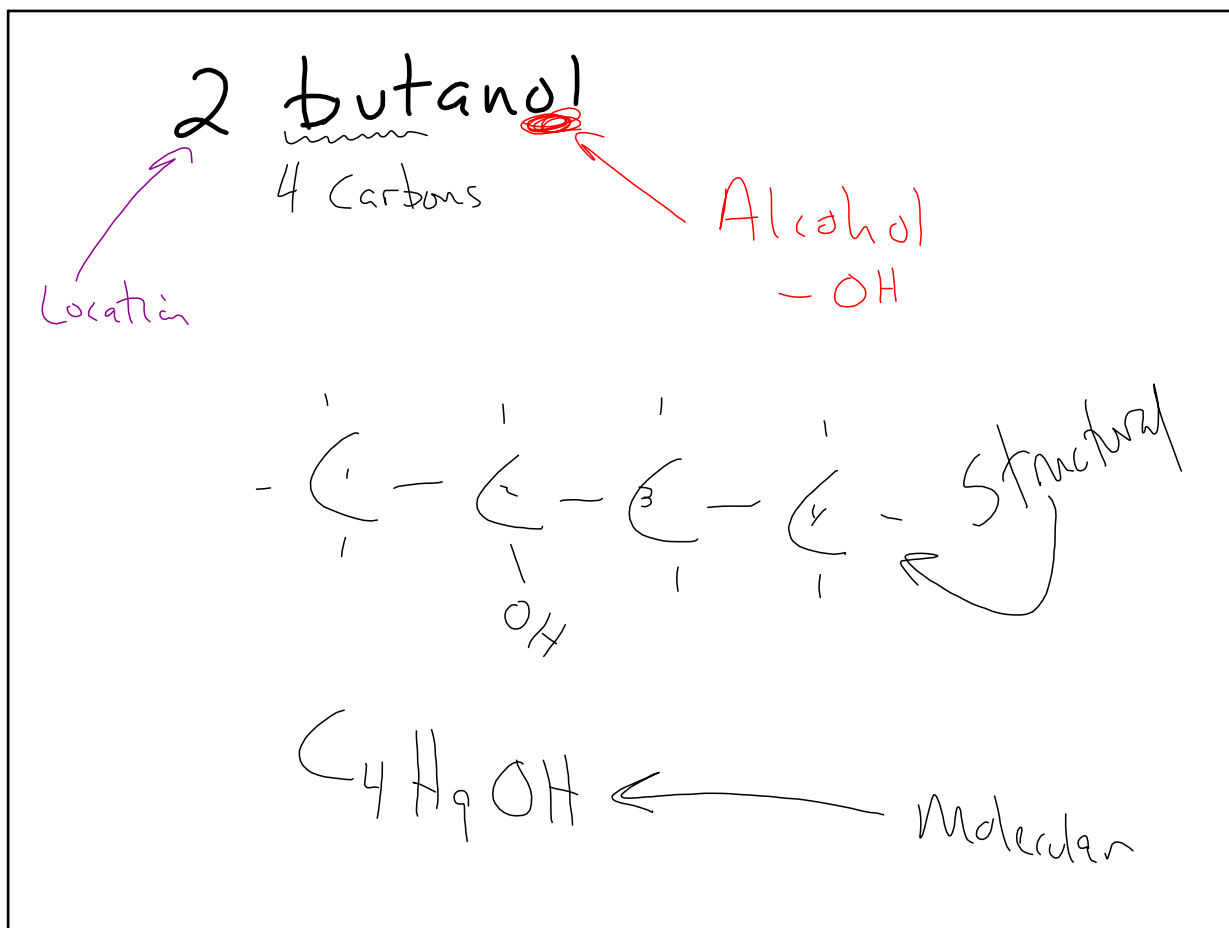 2 butanol
4 Carbons
Alcohol
- OH
Location
- C1 - C2 - C3 - C4 - Structural
OH
C4H9OH
Molecular